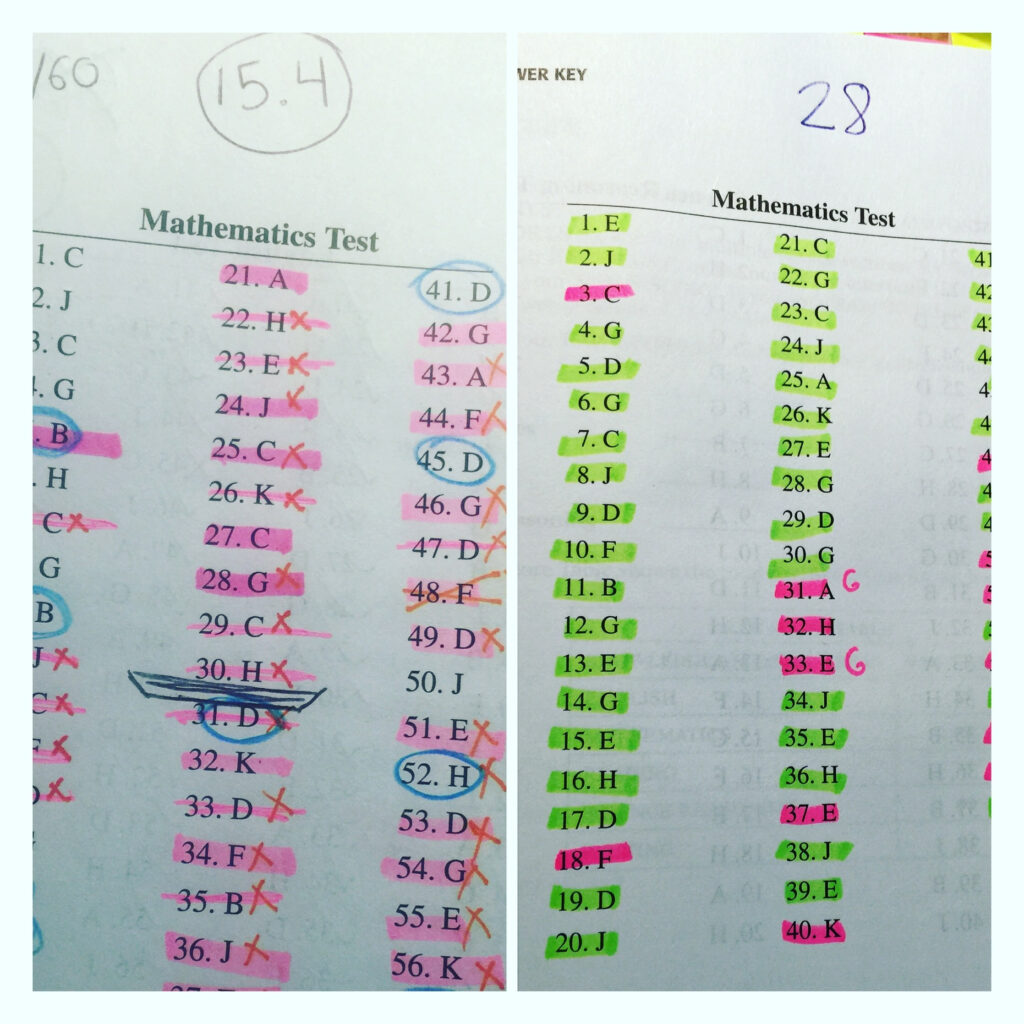 /60
15.4
Mathematics Test
1. C
2. J
3. C
4. G
. B
. H
C
G
B
J
C
21. A
22. H
23. E
24. J
25. C
26. K
27. C
28. G
29. C
30. H
31. D
32. K
33. D
34. F
35. B
36. J
41. D
42. G
43. A
44. F
45. D
46. G
47. D
48. F
49. D
50. J
51. E
52. H
53. D
54. G
55. E
56. K
WER KEY
28
Mathematics Test
1. E
2. J
3. C
4. G
5. D
6. G
7. C
8. J
9. D
10. F
11. B
12. G
13. E
14. G
15. E
16. H
17. D
18. F
19. D
20. J
21. C
22. G
23. C
24. J
25. A
26. K
27. E
28. G
29. D
30. G
31. A G
32. H
33. E G
34. J
35. E
36. H
37. E
38. J
39. E
40. K
41
42
43
44